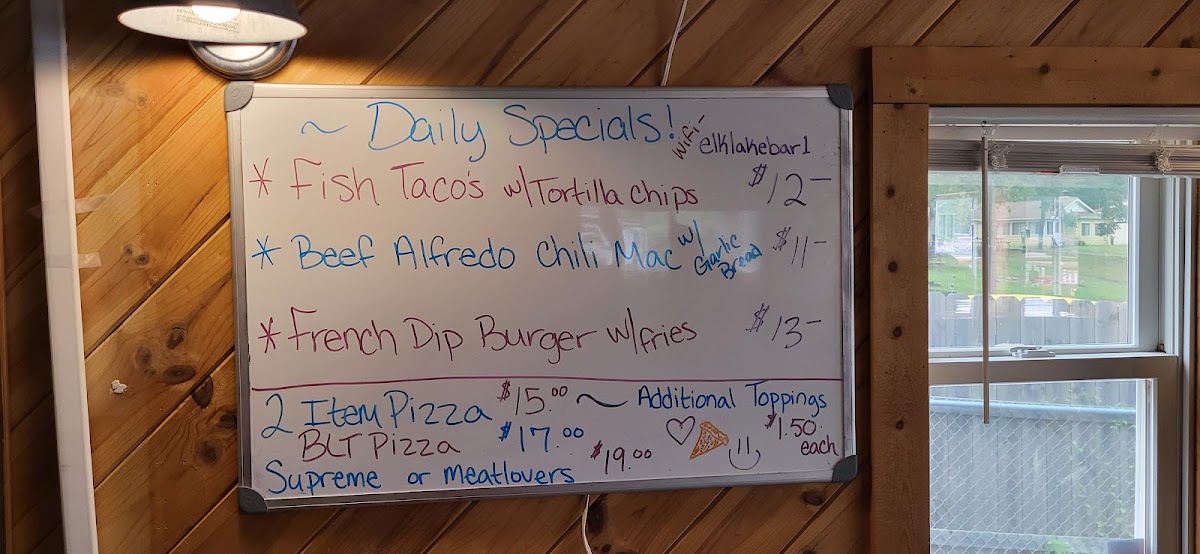 ~ Daily Specials!
Wifi- elklakebar1
* Fish Taco's w/Tortilla Chips $12-
* Beef Alfredo Chili Mac w/ Garlic Bread $11-
* French Dip Burger w/fries $13-
2 Item Pizza $15.00 ~ Additional Toppings $1.50 each
BLT Pizza $17.00
Supreme or Meatlovers $19.00